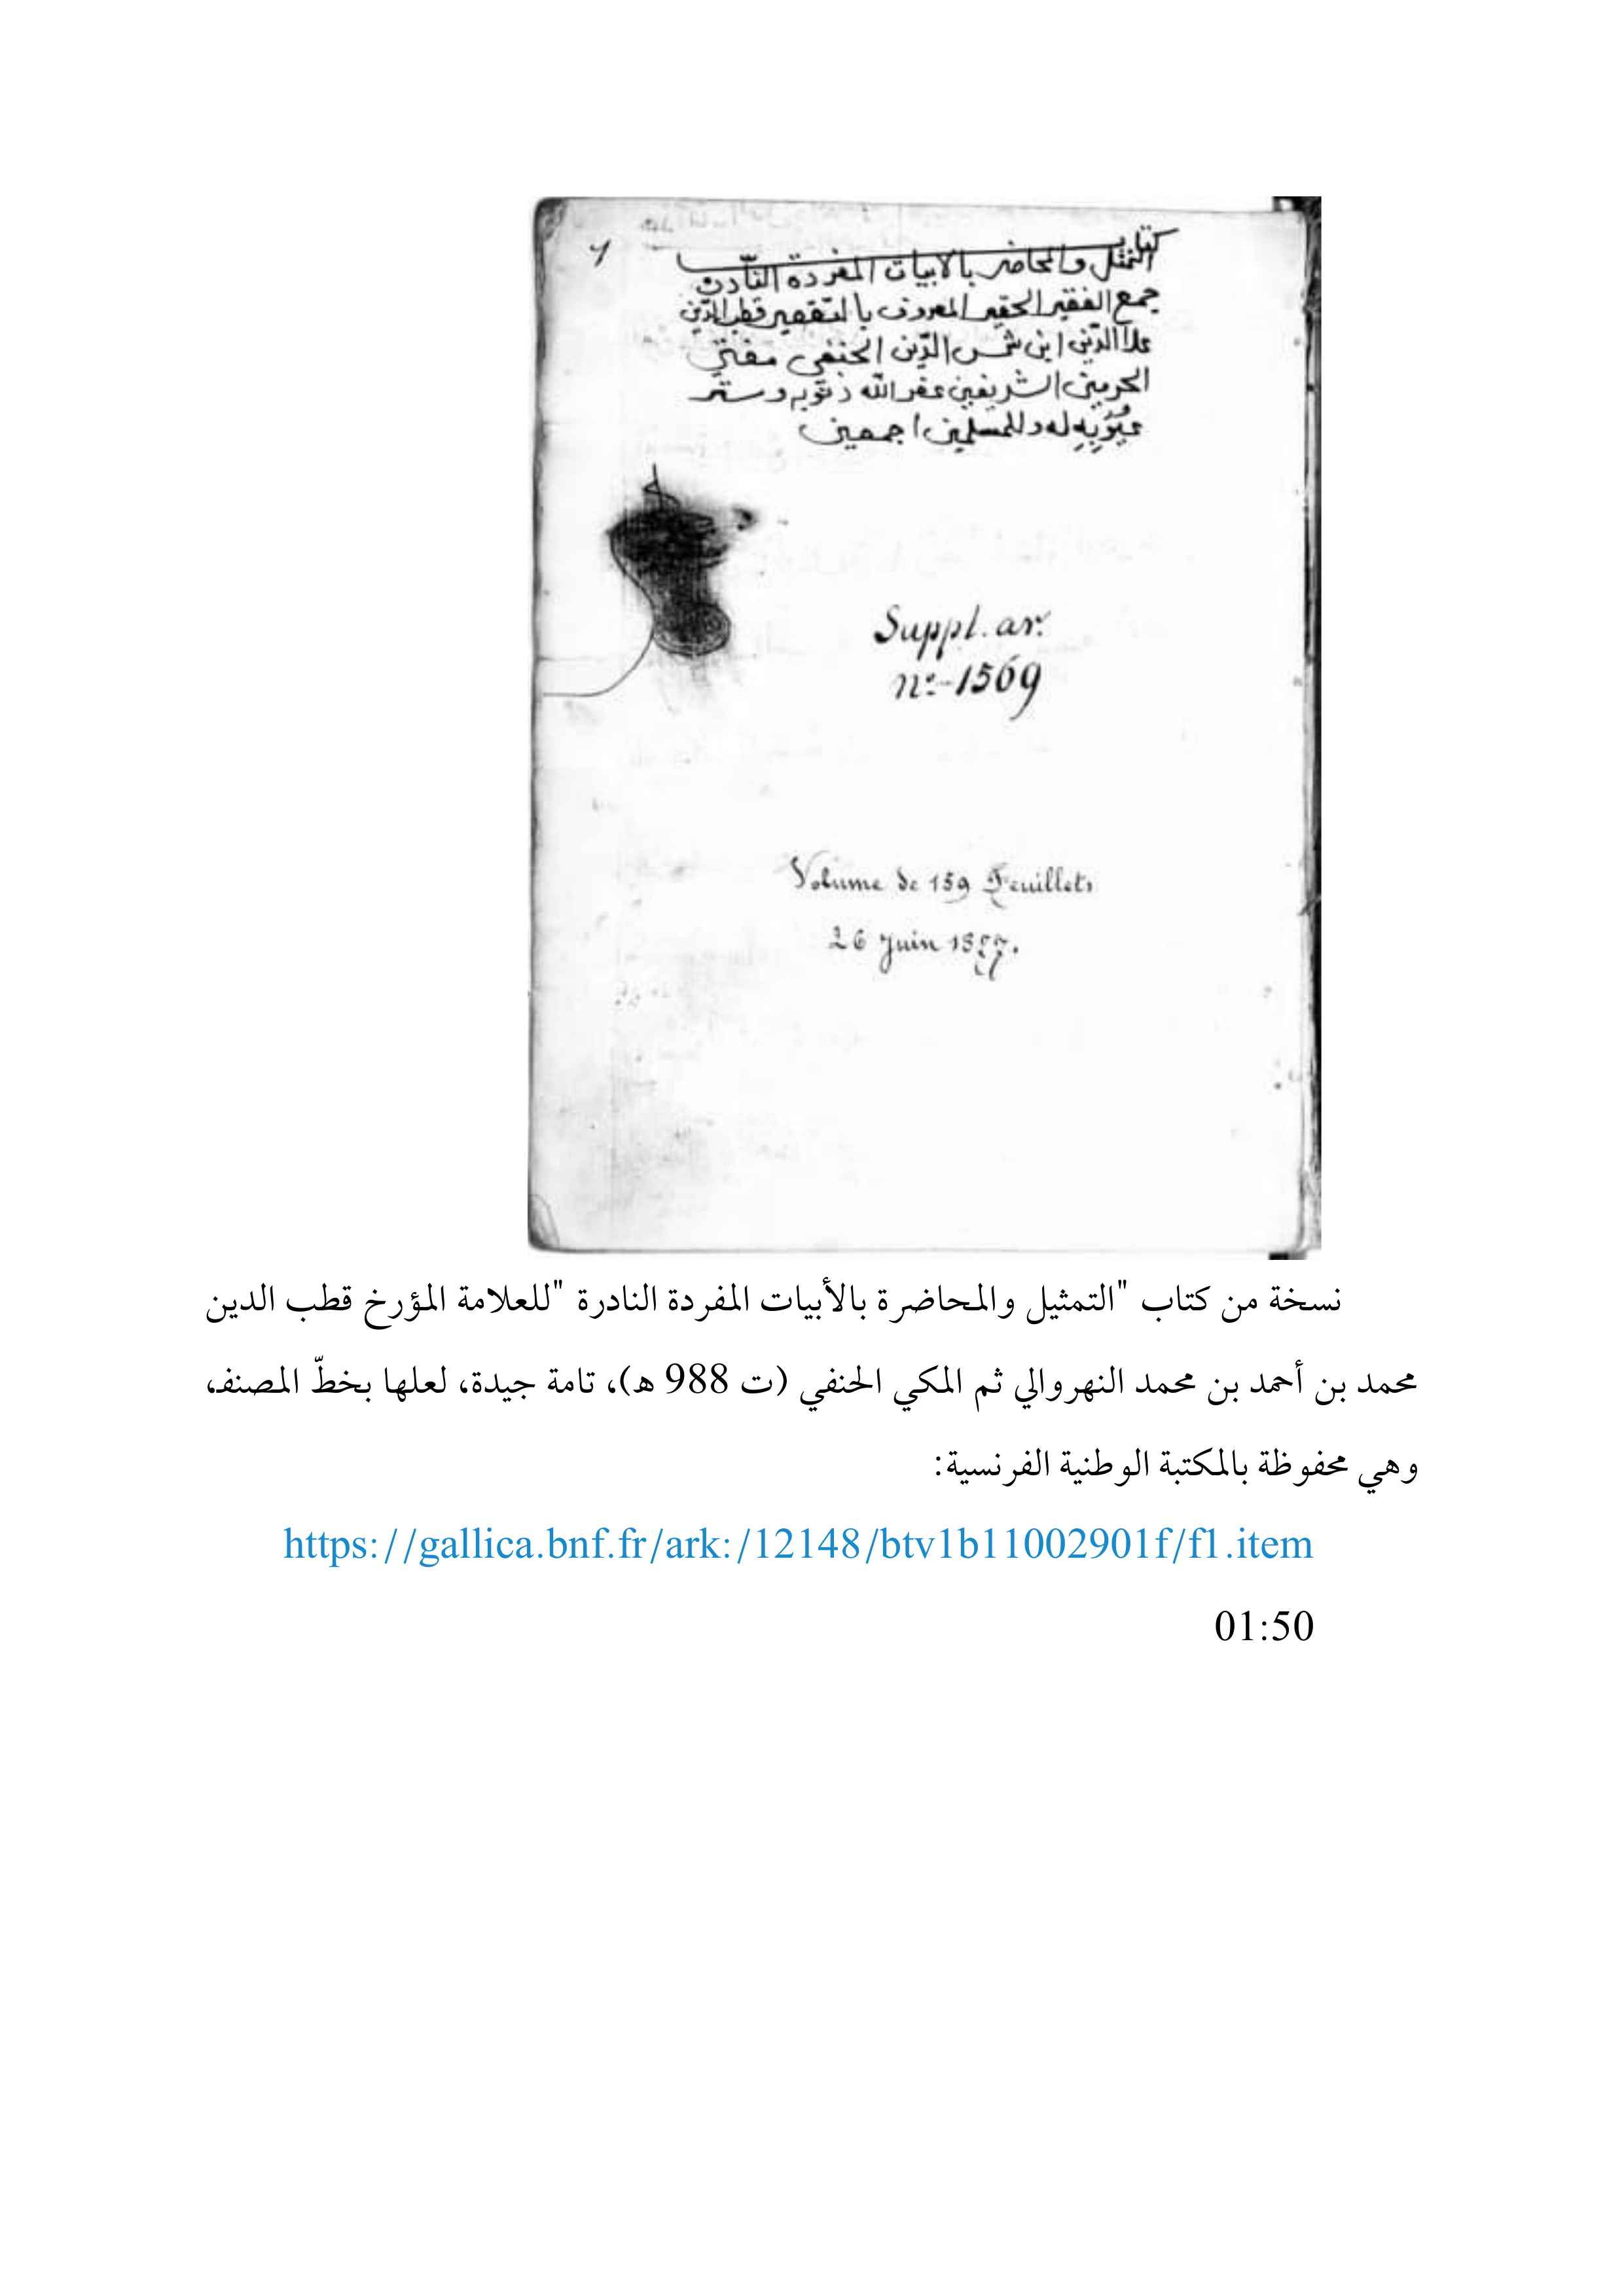 كتاب
التمثل والمحاضر بالابيات المفردة النادرة
جمع الفقير الحقير المعروف بالتقصير قطب الدين
علا الدين ابن شمس الدين الحنفي مفتي
الحرمين الشريفين غفر الله ذنوبه وستر
عيوبه له وللمسلمين اجمعين
Suppl. ar.
n°-1569
Volume de 159 Feuillets
26 Juin 1877.
نسخة من كتاب "التمثيل والمحاضرة بالأبيات المفردة النادرة "للعلامة المؤرخ قطب الدين
محمد بن أحمد بن محمد النهروالي ثم المكي الحنفي (ت 988 هـ)، تامة جيدة، لعلها بخطّ المصنف،
وهي محفوظة بالمكتبة الوطنية الفرنسية:
https://gallica.bnf.fr/ark:/12148/btv1b11002901f/f1.item
01:50